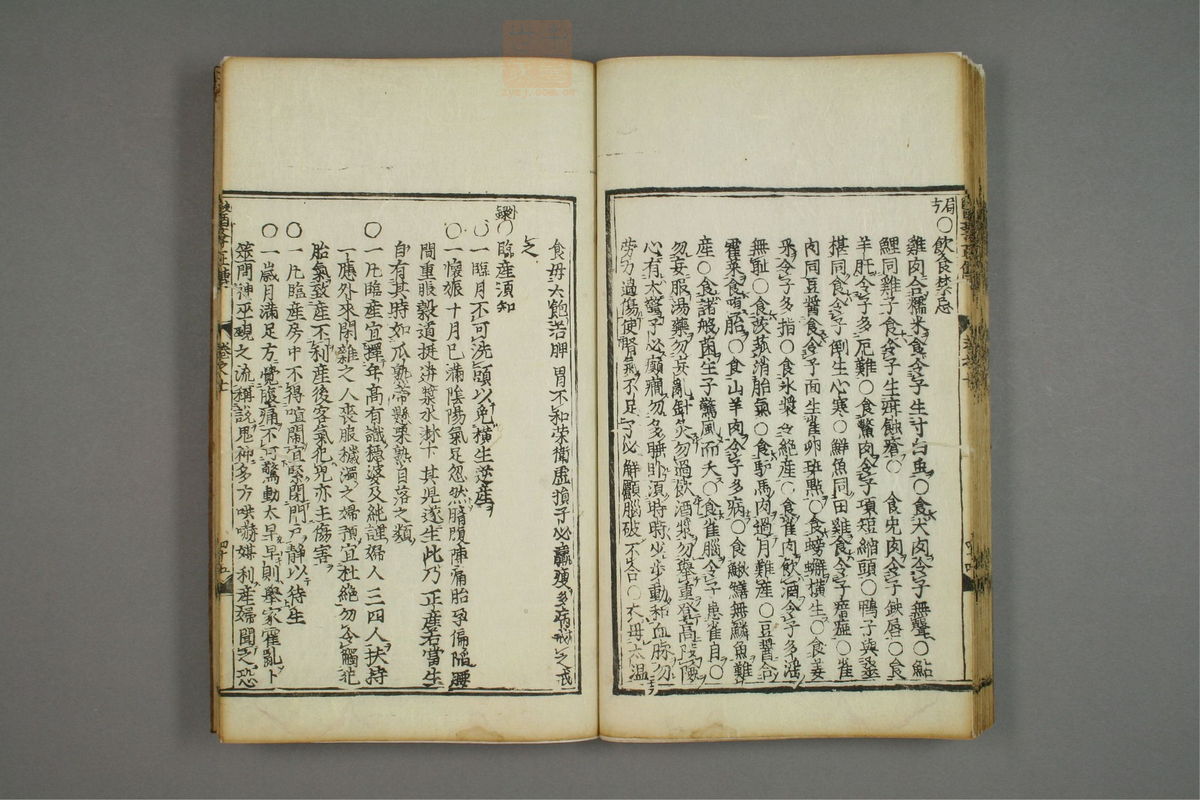 ○飲食禁忌
雞肉合糯米食令子生寸白虫○食犬肉令子無聲○鮎
鯉同雞子食令子生疳蝕瘡○食兎肉令子缺唇○食
羊肝令子多厄難○食鱉肉令子項短縮頭○鴨子與桑
椹同食令子倒生心寒○鮮魚同田雞食令子瘖瘂○雀
肉同豆醬食令子面生雀卵斑點○食螃蠏橫生○食姜
牙令子多指○食氷漿令絕産○食雀肉飲酒令子多滛
無恥○食茨菰消胎氣○食馿馬肉過月難産○豆醤合
藿菜食墮胎○食山羊肉令子多病○食鰍鱔無鱗魚難
産○食諸般菌生子驚風而夭○食雀腦令子患雀目○
勿妄服湯藥勿妄亂針灸勿過飲酒漿勿舉重登高涉險
心有大驚子必癲癇勿多睡卧須時時少步動和血脉勿
勞力過傷使腎氣不足子必解顱腦破不合○衣毋太温
食毋太飽若脾胃不和榮衛虛損子必羸瘦多病戒之戒
之
○臨産須知
○一臨月不可洗頭以免橫生逆産
○一懷娠十月已滿陰陽氣足忽然臍腹陣痛胎孕偏陷腰
間重脹穀道挺迸漿水淋下其児遂生此乃正産若當生
自有其時如瓜熟帶懸栗熟自落之類
○一凡臨産宜擇年高有識穩婆及純謹婦人三四人扶持
一應外來閑雜之人喪服穢濁之婦預宜杜絕勿令觸犯
胎氣致産不利産後客氣犯児亦主傷害
○一凡臨産房中不得喧閙宜緊閉門戶静以待生
○一歲月滿足方覺腹痛不可驚動太早早則舉家霍亂卜
筮問神巫覡之流稱說鬼神多方哄嚇媒利産婦聞之恐